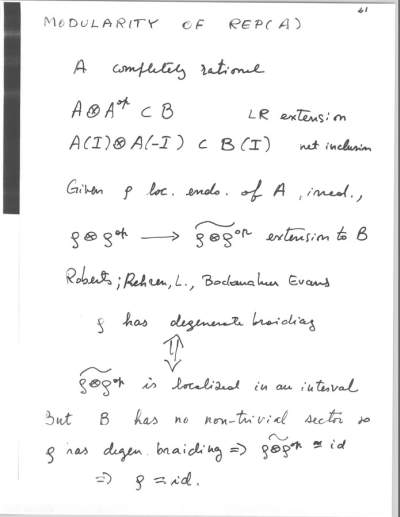 61
MODULARITY OF REP(A)
A completely rational
A⊗A^op ⊂ B LR extension
A(I)⊗A(-I) ⊂ B(I) net inclusion
Given ρ loc. endo. of A, irred.,
ρ⊗ρ^op → \widetilde{ρ⊗ρ^op} extension to B
Roberts; Rehren, L., Evans
ρ has degenerate braiding
⇕
\widetilde{ρ⊗ρ^op} is localized in an interval
But B has no non-trivial sector so
ρ has degen. braiding ⇒ \widetilde{ρ⊗ρ^op} ≃ id
⇒ ρ = id.